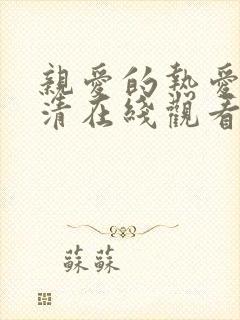 親愛的熱愛
清在綫觀看
蘇蘇